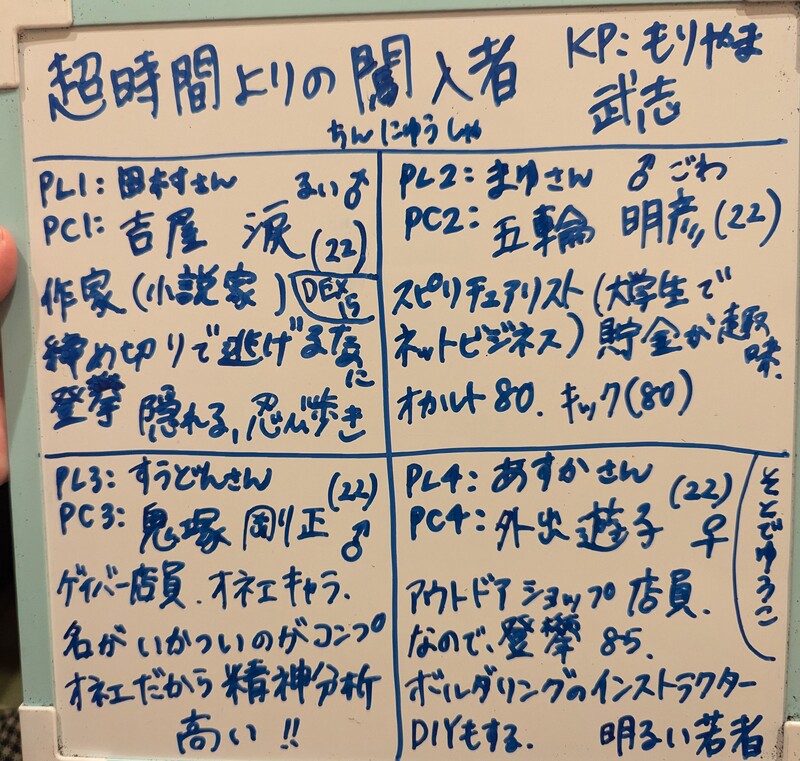 超時間よりの闖入者
ちんにゅうしゃ
KP: もりやま
武志
PL1: 田村すさん るい♂
PC1: 吉屋 涙 (22)
作家(小説家) DEX
15
締め切りで逃げるために
登攀 隠れる、忍び歩き
PL2: まゆさん ♂ ごわ
PC2: 五輪 明彦 (22)
スピリチュアリスト(大学生で
ネットビジネス) 貯金が趣味.
オカルト80. キック(80)
PL3: すうどんさん (22)
PC3: 鬼塚 剛正 ♂
ゲイバー店員. オネエキャラ.
名がいかついのがコンプ
オネエだから精神分析
高い!!
PL4: あすかさん (22)
PC4: 外出 遊子 ♀
そとでゆうこ
アウトドアショップ店員.
なので、登攀 85.
ボルダリングのインストラクター
DIYもする. 明るい若者